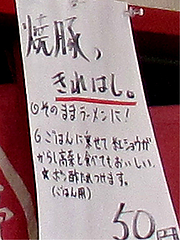 焼豚、
きれはし。
◎そのままラーメンに!
6 ごはんに乗せて紅ショウガ
からし高菜と食べてもおいしい。
★ポン酢もあいます。
(ごはん用)
50円